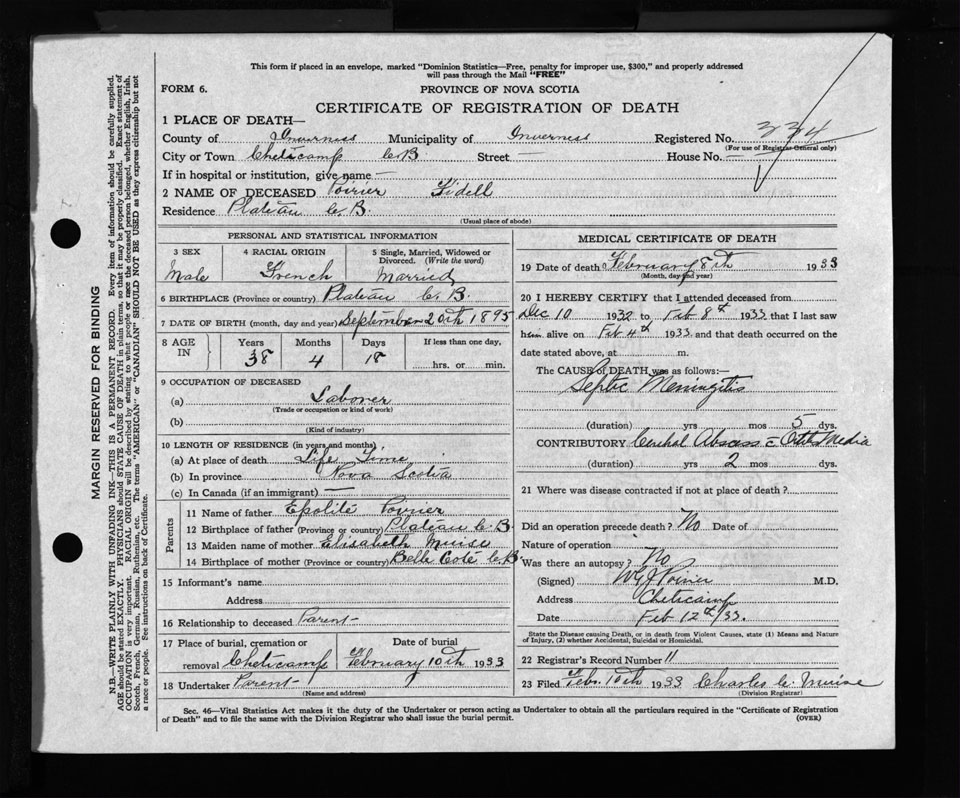 This form if placed in an envelope, marked "Dominion Statistics—Free, penalty for improper use, $300," and properly addressed
will pass through the Mail "FREE"
FORM 6.
PROVINCE OF NOVA SCOTIA
CERTIFICATE OF REGISTRATION OF DEATH
1 PLACE OF DEATH—
County of Inverness Municipality of Inverness Registered No. 334
(For use of Registrar General only)
City or Town Cheticamp C.B. Street — House No. —
If in hospital or institution, give name —
2 NAME OF DECEASED Poirier Fidell
Residence Plateau C.B.
(Usual place of abode)
PERSONAL AND STATISTICAL INFORMATION
3 SEX 4 RACIAL ORIGIN 5 Single, Married, Widowed or
Divorced. (Write the word)
Male French Married
6 BIRTHPLACE (Province or country) Plateau C.B.
7 DATE OF BIRTH (month, day and year) September 20th 1895
8 AGE IN Years Months Days If less than one day,
38 4 18 hrs. or min.
9 OCCUPATION OF DECEASED
(a) Laborer
(Trade or occupation or kind of work)
(b)
(Kind of industry)
10 LENGTH OF RESIDENCE (in years and months)
(a) At place of death Life Time
(b) In province Nova Scotia
(c) In Canada (if an immigrant) —
Parents
11 Name of father Epolite Poirier
12 Birthplace of father (Province or country) Plateau C.B.
13 Maiden name of mother Elisabeth Muise
14 Birthplace of mother (Province or country) Belle Cote C.B.
15 Informant's name
Address
16 Relationship to deceased Parent
17 Place of burial, cremation or Date of burial
removal Cheticamp February 10th 1933
18 Undertaker Parent
(Name and address)
MEDICAL CERTIFICATE OF DEATH
19 Date of death February 8th 1933
(Month, day and year)
20 I HEREBY CERTIFY that I attended deceased from
Dec 10 1932 to Feb 8th 1933 that I last saw
him alive on Feb 4th 1933 and that death occurred on the
date stated above, at m.
The CAUSE of DEATH was as follows:—
Septic Meningitis
(duration) yrs mos 5 dys.
CONTRIBUTORY Cerebral Abscess = Otitis Media
(duration) yrs 2 mos dys.
21 Where was disease contracted if not at place of death?
Did an operation precede death? No Date of
Nature of operation
Was there an autopsy? No
(Signed) WGJ Poirier M.D.
Address Cheticamp
Date Feb 12th/33.
State the Disease causing Death, or in death from Violent Causes, state (1) Means and Nature
of Injury, (2) whether Accidental, Suicidal or Homicidal.
22 Registrar's Record Number 11
23 Filed Feb. 10th 1933 Charles C. Muise
(Division Registrar)
Sec. 46—Vital Statistics Act makes it the duty of the Undertaker or person acting as Undertaker to obtain all the particulars required in the "Certificate of Registration
of Death" and to file the same with the Division Registrar who shall issue the burial permit.
(OVER)
MARGIN RESERVED FOR BINDING
N.B.—WRITE PLAINLY WITH UNFADING INK—THIS IS A PERMANENT RECORD. Every item of information should be carefully supplied.
AGE should be stated EXACTLY. PHYSICIANS should STATE CAUSE OF DEATH in plain terms, so that it may be properly classified. Exact statement of
OCCUPATION is very important. RACIAL ORIGIN will be described by stating to what people or race the deceased person belonged, whether English, Irish,
Scotch, French, German, Russian, Ruthenian, etc. The terms "AMERICAN" or "CANADIAN" SHOULD NOT BE USED as they express citizenship but not
a race or people. See instructions on back of Certificate.